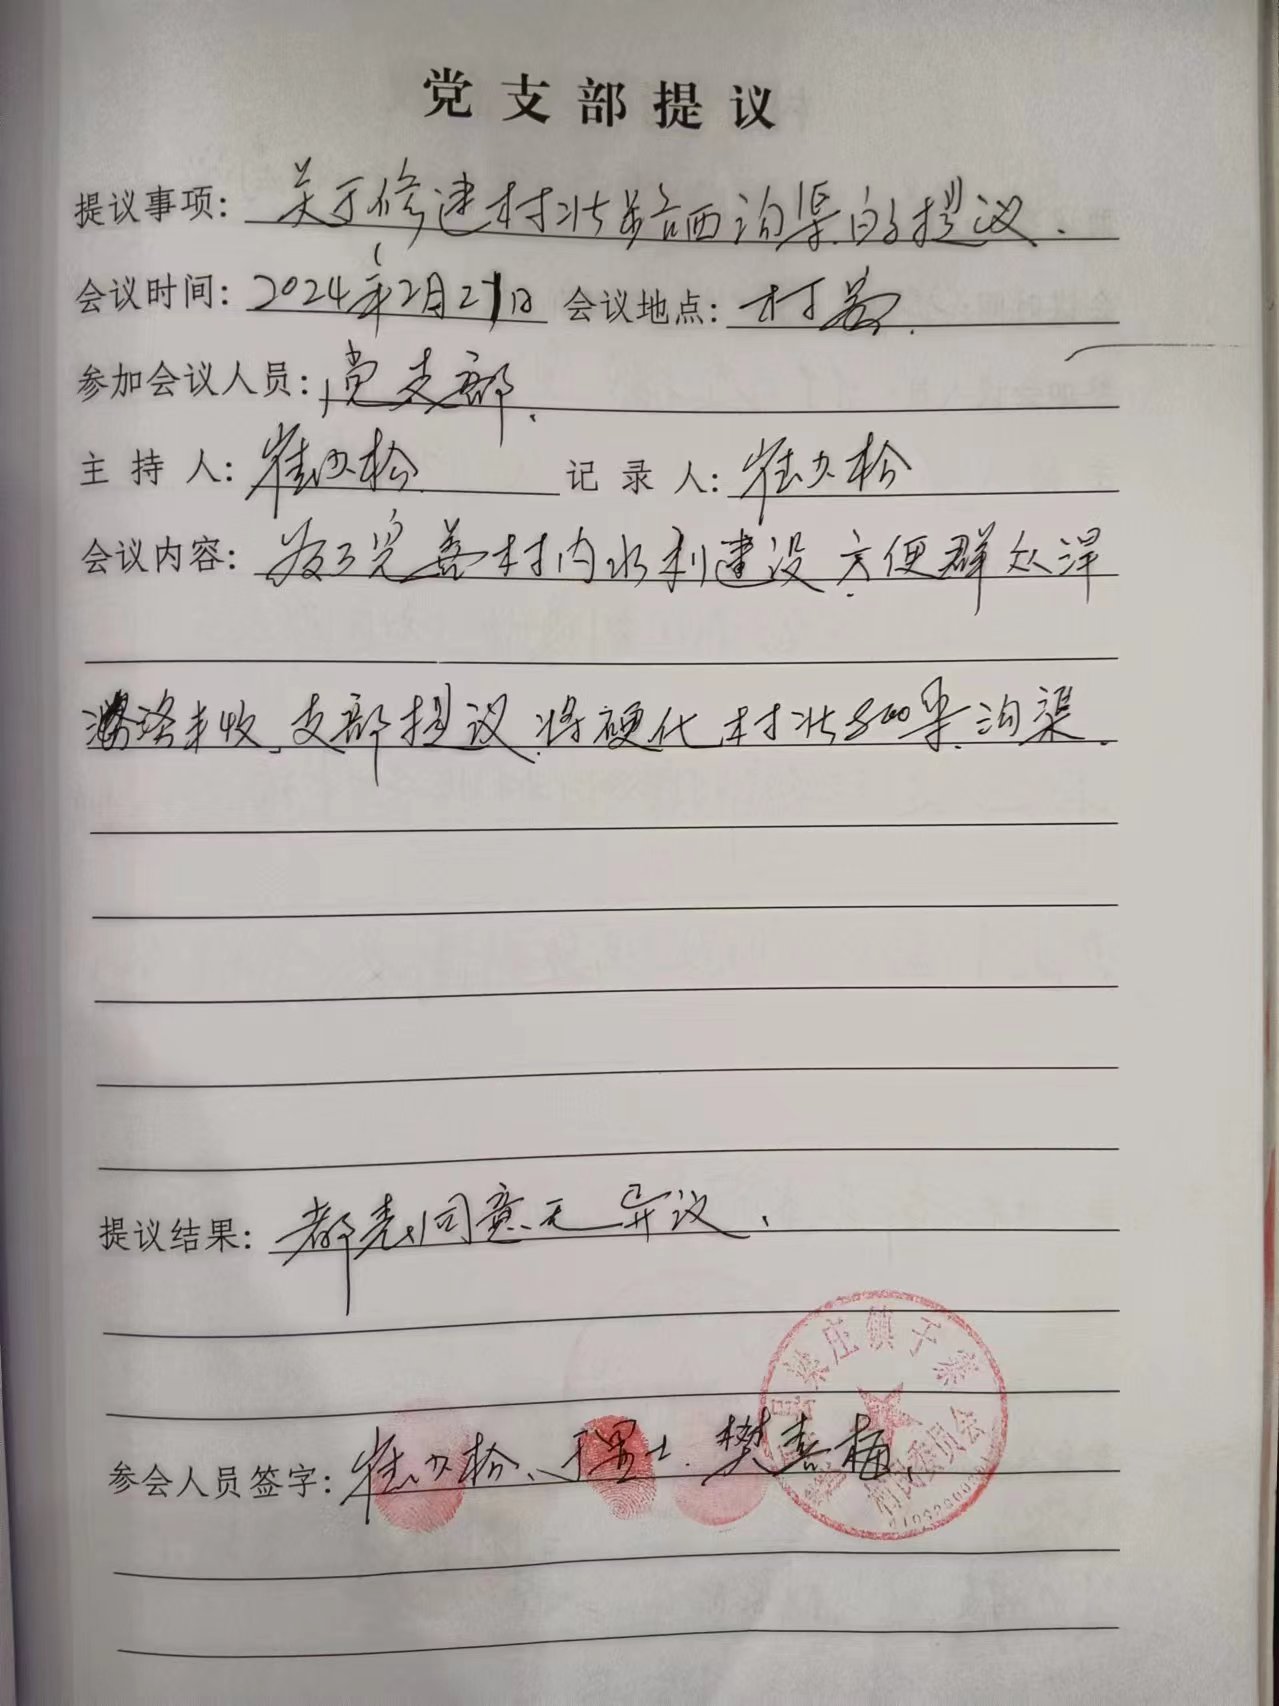 党支部提议
提议事项：关于修建村北路西沟渠的提议.
会议时间：2024年2月21日 会议地点：村部.
参加会议人员：党支部.
主持人：崔少松 记录人：崔少松
会议内容：为了完善村内水利建设方便群众浇
丰收、支部提议.将硬化村北800米沟渠.
提议结果：都表同意.无异议、
参会人员签字：崔少松、于墨士.樊喜梅
梁庄镇于寨
村民委员会